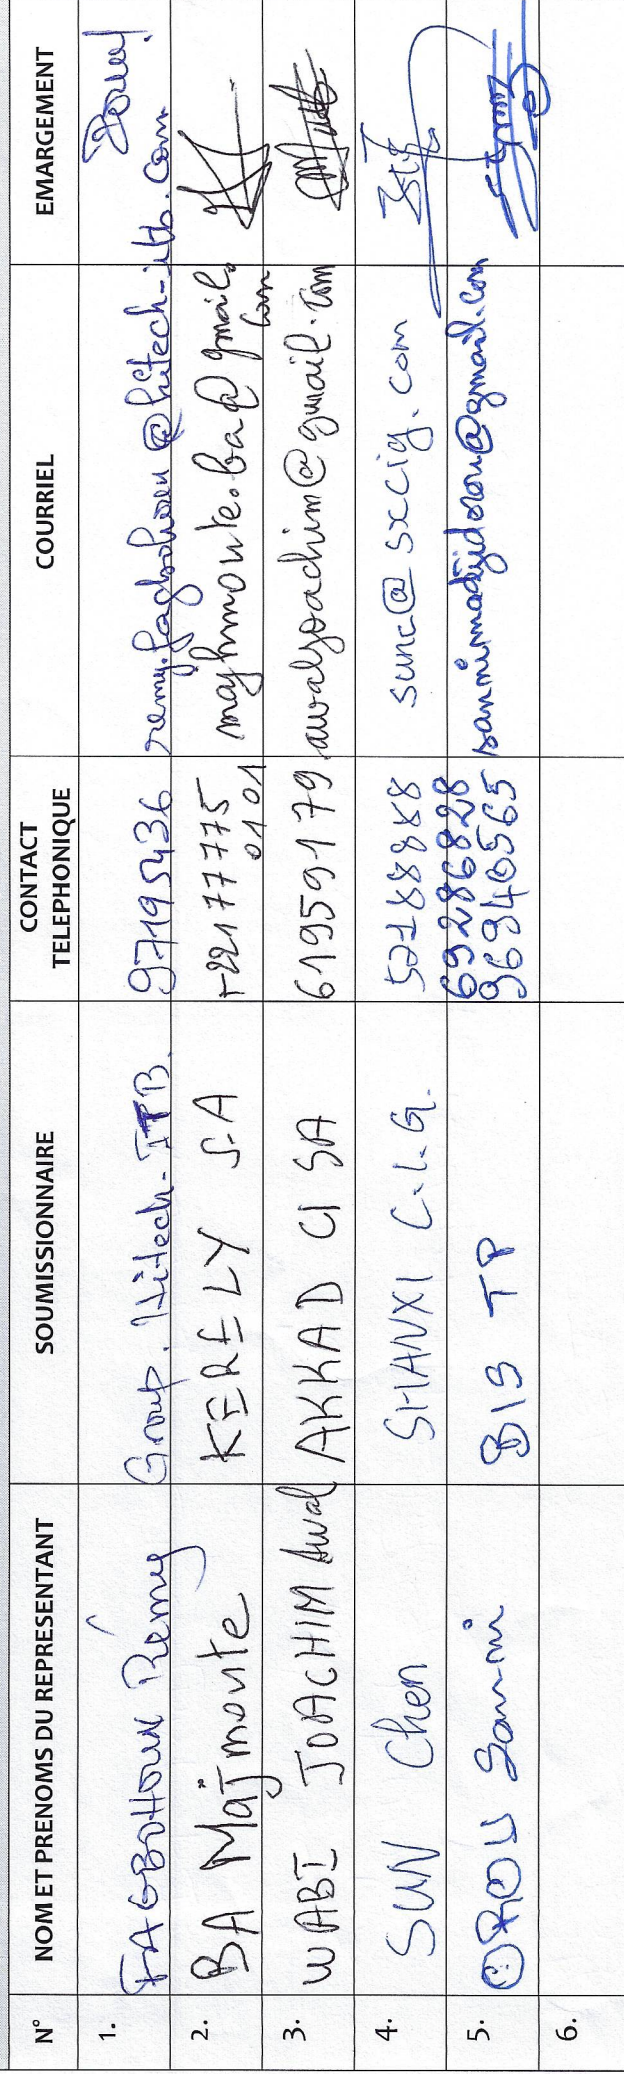 N° NOM ET PRENOMS DU REPRESENTANT SOUMISSIONNAIRE CONTACT TELEPHONIQUE COURRIEL EMARGEMENT
1. FAGBOHOUN Rémy Group. Hitech-ITB. 97195436 remy.fagbohoun@hitech-itb.com
2. BA Majmoute KERELY S.A +221777750101 majhmoute.ba@gmail.com
3. WABI JOACHIM Awal AKKAD CI SA 61959179 awaljoachim@gmail.com
4. SUN Chen SHANXI C.I.G. 52188888 sunc@sxcig.com
5. OROU Sanmi BIS TP 69286828 96946565
6.